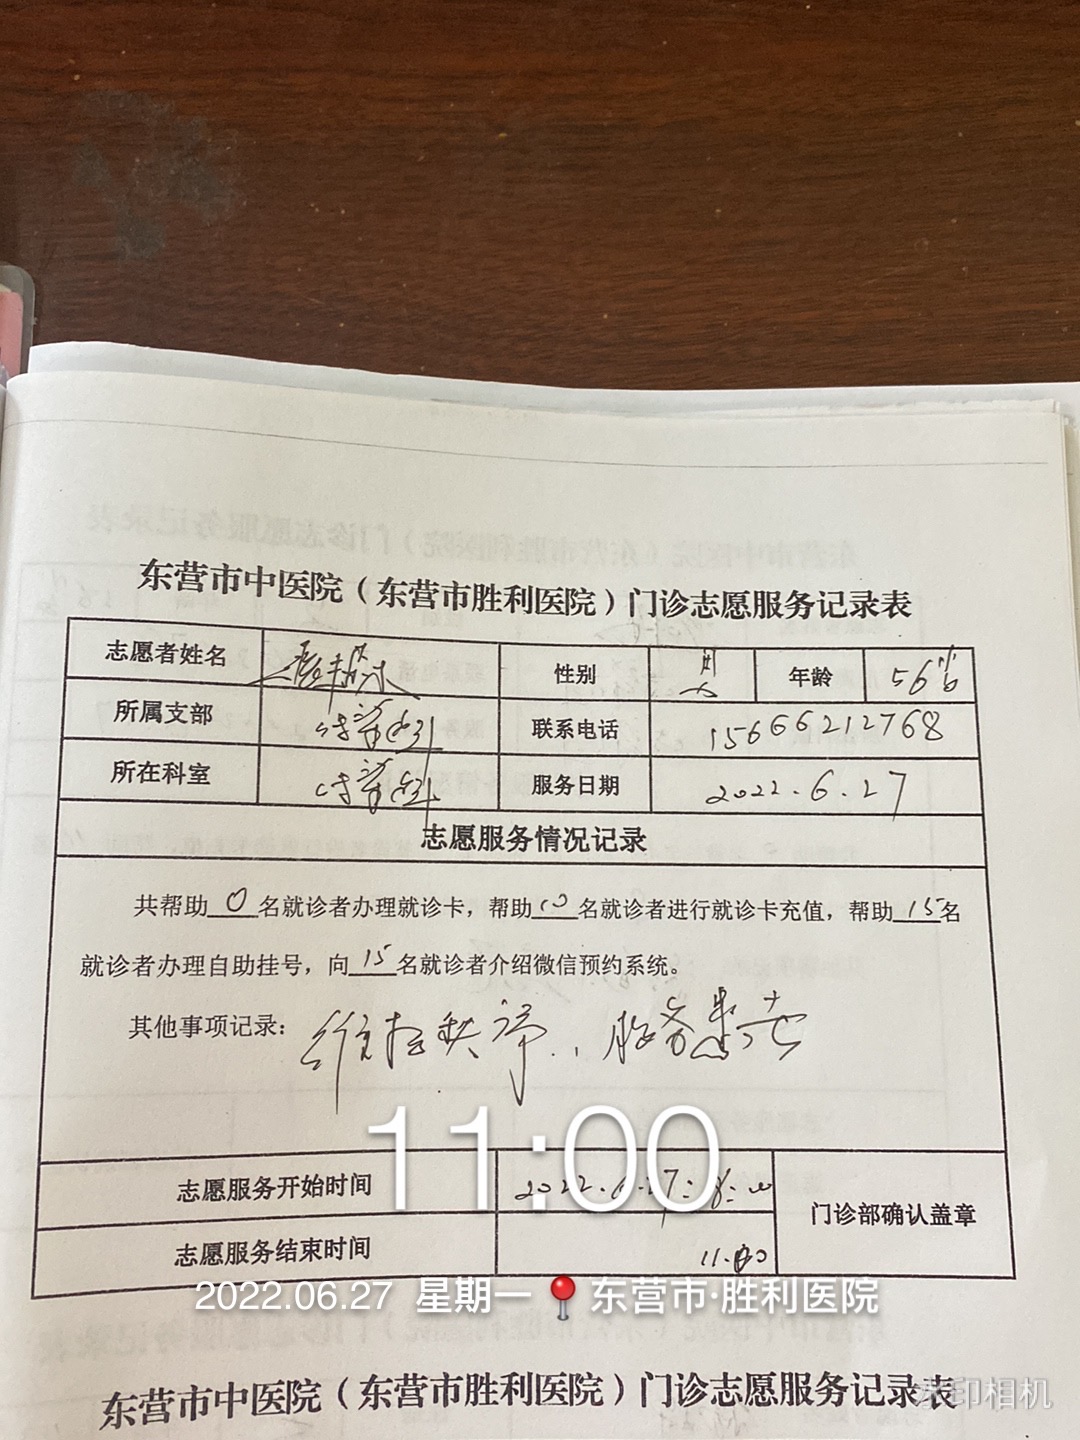 东营市中医院（东营市胜利医院）门诊志愿服务记录表
志愿者姓名 性别 男 年龄 56岁
所属支部 联系电话 15666212768
所在科室 服务日期 2022.6.27
志愿服务情况记录
共帮助0名就诊者办理就诊卡，帮助10名就诊者进行就诊卡充值，帮助15名
就诊者办理自助挂号，向15名就诊者介绍微信预约系统。
其他事项记录：维持秩序、服务患者
11:00
志愿服务开始时间 2022.6.27: 8:00
门诊部确认盖章
志愿服务结束时间 11.00
2022.06.27 星期一 东营市·胜利医院
东营市中医院（东营市胜利医院）门诊志愿服务记录表
水印相机